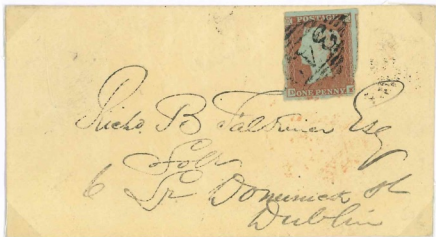 POSTAGE
ONE PENNY
Richd. B Falkiner Esq
Solr
6 Lr Dominick St
Dublin